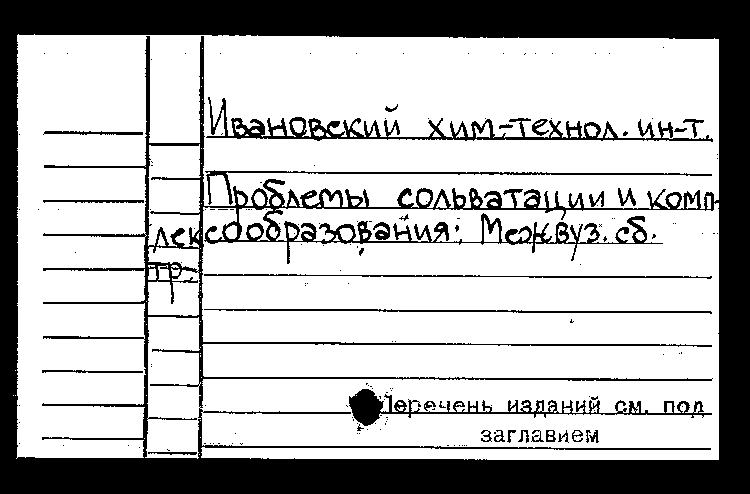 Ивановский хим-технол. ин-т.
Проблемы сольватации и комп-
лексообразования: Межвуз. сб.
тр.
Перечень изданий см. под
заглавием